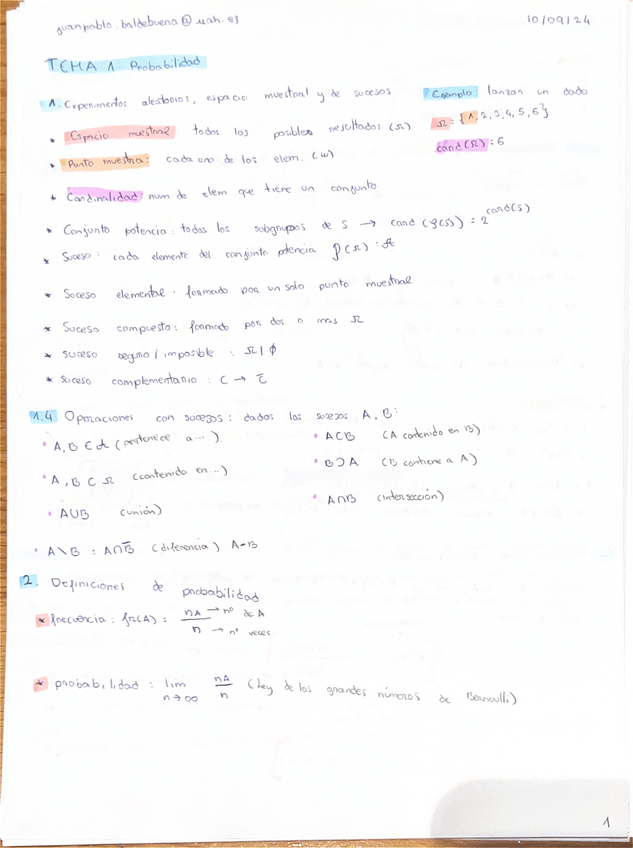 juanpablo.baldebuena@uah.es
10/09/24
TEMA 1 Probabilidad
1. Experimentos aleatorios, espacio muestral y de sucesos
Ejemplo lanzan un dado
* Espacio muestral todos los posibles resultados (Ω)
Ω = {1, 2, 3, 4, 5, 6}
* Punto muestra: cada uno de los elem. (ω)
card(Ω): 6
* Cardinalidad num de elem que tiene un conjunto
* Conjunto potencia: todos los subgrupos de S → card (℘(S)) = 2^card(S)
* Suceso: cada elemento del conjunto potencia ℘(Ω): A
* Suceso elemental: formado por un solo punto muestral
* Suceso compuesto: formado por dos o mas Ω
* Suceso seguro / imposible: Ω / ∅
* Suceso complementario: C → C̅
1.4 Operaciones con sucesos: dados los sucesos A, B:
• A, B ∈ A (pertenece a...)
• A⊂B (A contenido en B)
• A, B ⊂ Ω (contenido en...)
• B⊃A (B contiene a A)
• A∪B (unión)
• A∩B (intersección)
• A\B = A∩B̅ (diferencia) A-B
2. Definiciones de probabilidad
* frecuencia: fr(A) = nA/n → nº de A → nº veces
* probabilidad: lim n→∞ nA/n (Ley de los grandes números de Bernoulli)
1